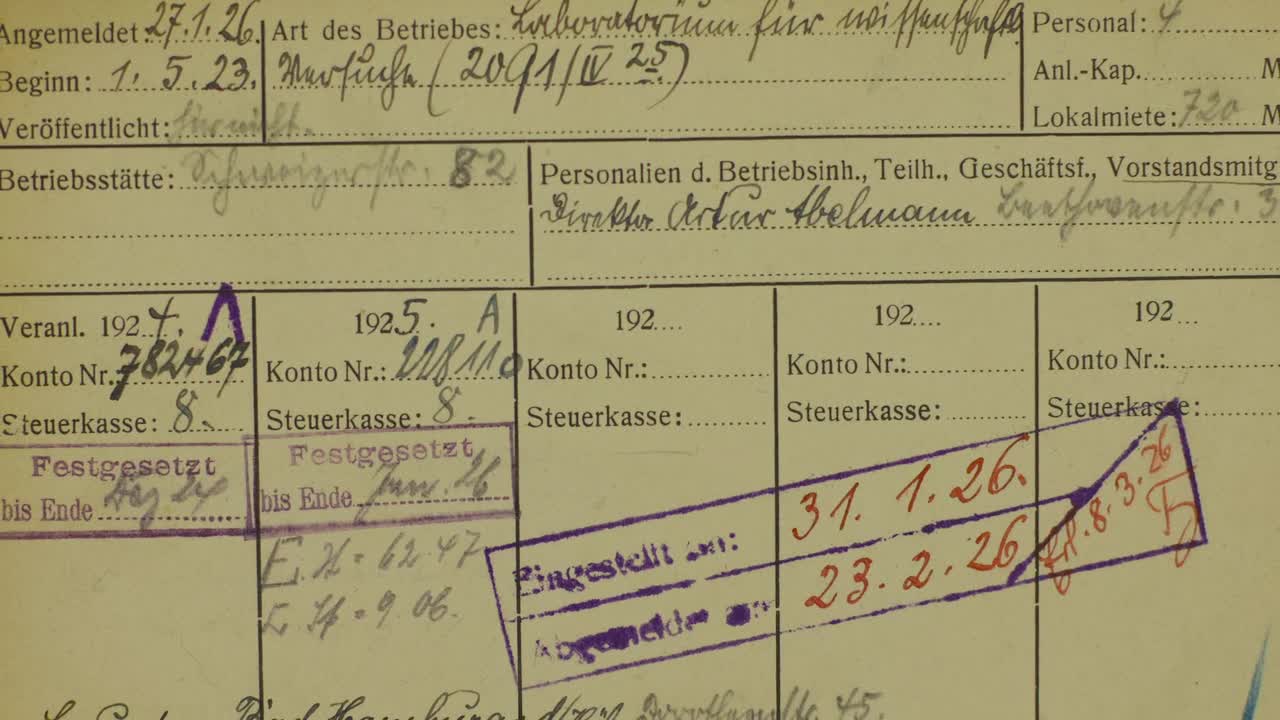 Angemeldet: 27.1.26. Art des Betriebes: Laboratorium für wissenschaftl. Personal: 4
Beginn: 1. 5. 23. Versuche (2091/IV 25) Anl.-Kap. M
Veröffentlicht: Lokalmiete: 720 M
Betriebsstätte: Schweizerstr. 82 Personalien d. Betriebsinh., Teilh., Geschäftsf., Vorstandsmitg
Direktor Artur Abelmann Beethovenstr. 3
Veranl. 1924. 1925. A 192.... 192.... 192...
Konto Nr. 782467 Konto Nr.: 228110 Konto Nr.: Konto Nr.: Konto Nr.:
Steuerkasse: 8. Steuerkasse: 8. Steuerkasse: Steuerkasse: Steuerkasse:
Festgesetzt
bis Ende Dez 24
Festgesetzt
bis Ende Jan. 26
Eingestellt am: 31. 1. 26.
Abgemeldet am 23. 2. 26
erl. 8. 3. 26
= 62.47
= 9.06.
Bad Homburg Dorotheenstr. 45.